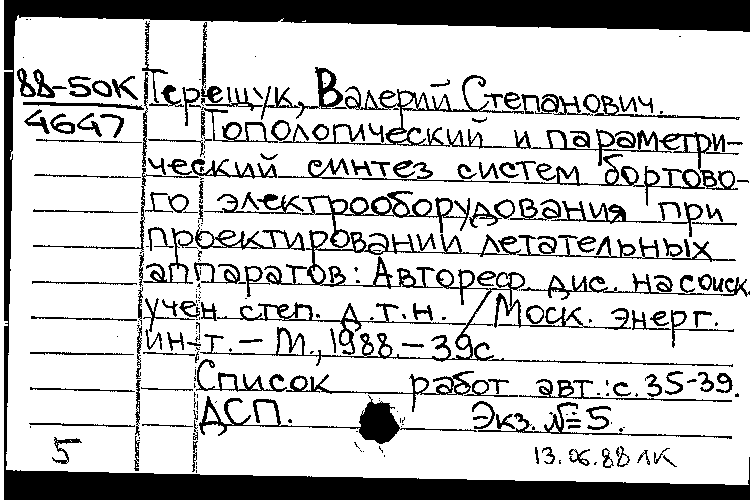 88-50К Терещук, Валерий Степанович.
4647 Топологический и параметри-
ческий синтез систем бортово-
го электрооборудования при
проектировании летательных
аппаратов: Автореф. дис. на соиск.
учен. степ. д.т.н. / Моск. энерг.
ин-т. – М., 1988. – 39с
Список работ авт.: с. 35-39.
ДСП. Экз. №5.
5 13.06.88 ЛК